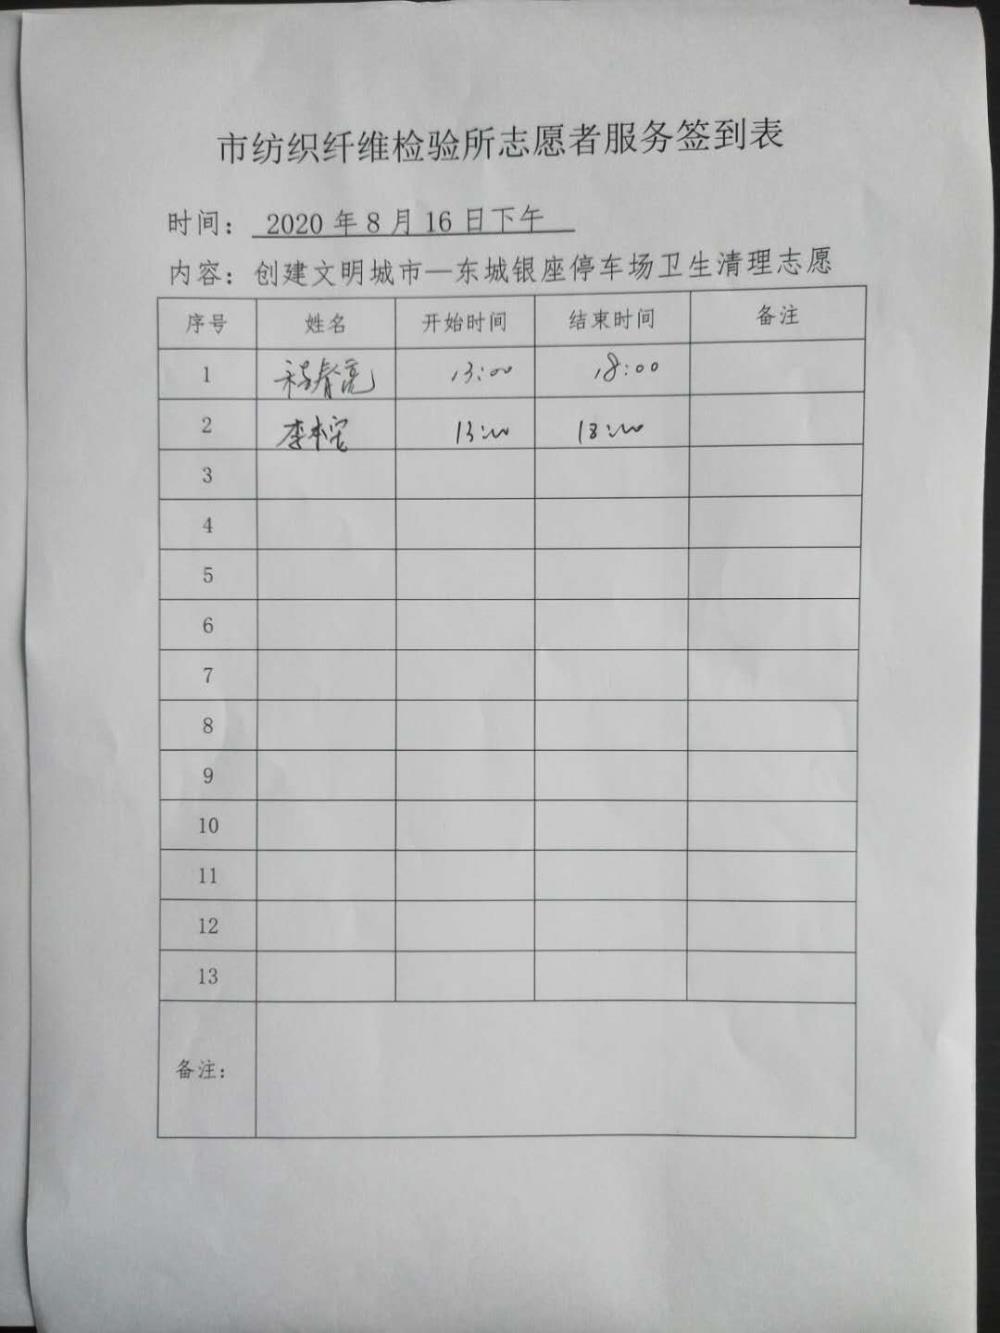 市纺织纤维检验所志愿者服务签到表
时间： 2020 年 8 月 16 日下午
内容：创建文明城市—东城银座停车场卫生清理志愿
序号 姓名 开始时间 结束时间 备注
1 13:00 18:00
2 李本宅 13:00 18:00
3
4
5
6
7
8
9
10
11
12
13
备注：